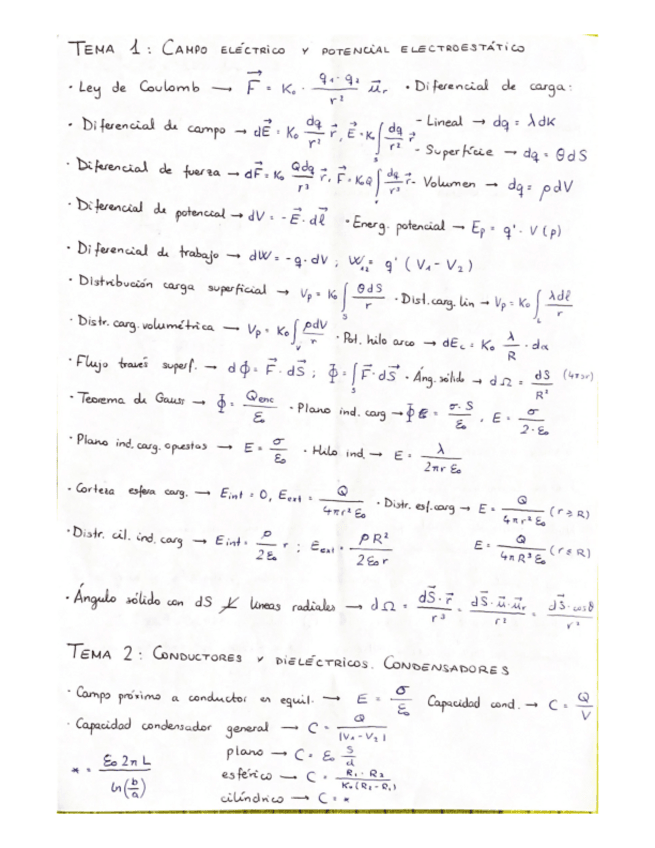 TEMA 1: CAMPO ELÉCTRICO Y POTENCIAL ELECTROESTÁTICO
· Ley de Coulomb → F⃗ = K₀ · (q₁·q₂)/r² u⃗ᵣ · Diferencial de carga:
· Diferencial de campo → dE⃗ = K₀ dq/r² r⃗, E⃗ = K₀∫ₛ dq/r² r⃗ - Lineal → dq = λdℓ
- Superficie → dq = θdS
· Diferencial de fuerza → dF⃗ = K₀ Qdq/r³ r⃗, F⃗ = K₀Q∫ᵥ dq/r³ r⃗ - Volumen → dq = ρdV
· Diferencial de potencial → dV = -E⃗·dℓ⃗ · Energ. potencial → Eₚ = q'·V(p)
· Diferencial de trabajo → dW = -q·dV ; W₁₂ = q'(V₁ - V₂)
· Distribución carga superficial → Vₚ = K₀∫ₛ θdS/r · Dist. carg. lin → Vₚ = K₀∫_L λdℓ/r
· Distr. carg. volumétrica → Vₚ = K₀∫ᵥ ρdV/r · Pot. hilo arco → dE_c = K₀ λ/R · dα
· Flujo través superf. → dΦ = F⃗·dS⃗ ; Φ = ∫ₛ F⃗·dS⃗ · Áng. sólido → dΩ = dS/R²
· Teorema de Gauss → Φ = Qenc/ε₀ · Plano ind. carg → Φ = σ·S/ε₀, E = σ/(2·ε₀)
· Plano ind. carg. opuestas → E = σ/ε₀ · Hilo ind. → E = λ/(2πrε₀)
· Corteza esfera carg. → Eint = 0, Eext = Q/(4πr²ε₀) · Distr. esf. carg → E = Q/(4πr²ε₀) (r≥R)
· Distr. cil. ind. carg → Eint = ρ/(2ε₀) r ; Eext = ρR²/(2ε₀r) E = Q/(4πR³ε₀) (r≤R)
· Ángulo sólido con dS ⊥̸ líneas radiales → dΩ = dS⃗·r⃗/r³ = dS⃗·u⃗·u⃗ᵣ/r² = dS⃗·cosθ/r²
TEMA 2: CONDUCTORES Y DIELÉCTRICOS. CONDENSADORES
· Campo próximo a conductor en equil. → E = σ/ε₀ Capacidad cond. → C = Q/V
· Capacidad condensador general → C = Q/|V₁-V₂|
plano → C = ε₀ S/d
* = ε₀2πL/ln(b/a) esférico → C = R₁·R₂/K₀(R₂-R₁)
cilíndrico → C = *